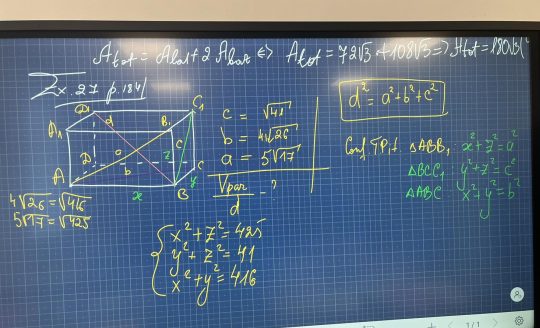 A tot = A lat + 2 A baz ⇔ A tot = 72√3 + 108√3 ⇒ A tot = 180√3
Ex. 27 p. 184
D1 C1
A1 B1
d
a
c
z
b
D C
A B
x y
c = √41
b = 4√26
a = 5√17
Vpar - ?
d
d² = a² + b² + c²
Conf TPit ΔABB1 x² + z² = a²
ΔBCC1: y² + z² = c²
ΔABC x² + y² = b²
4√26 = √416
5√17 = √425
{ x² + z² = 425
y² + z² = 41
x² + y² = 416
1/1